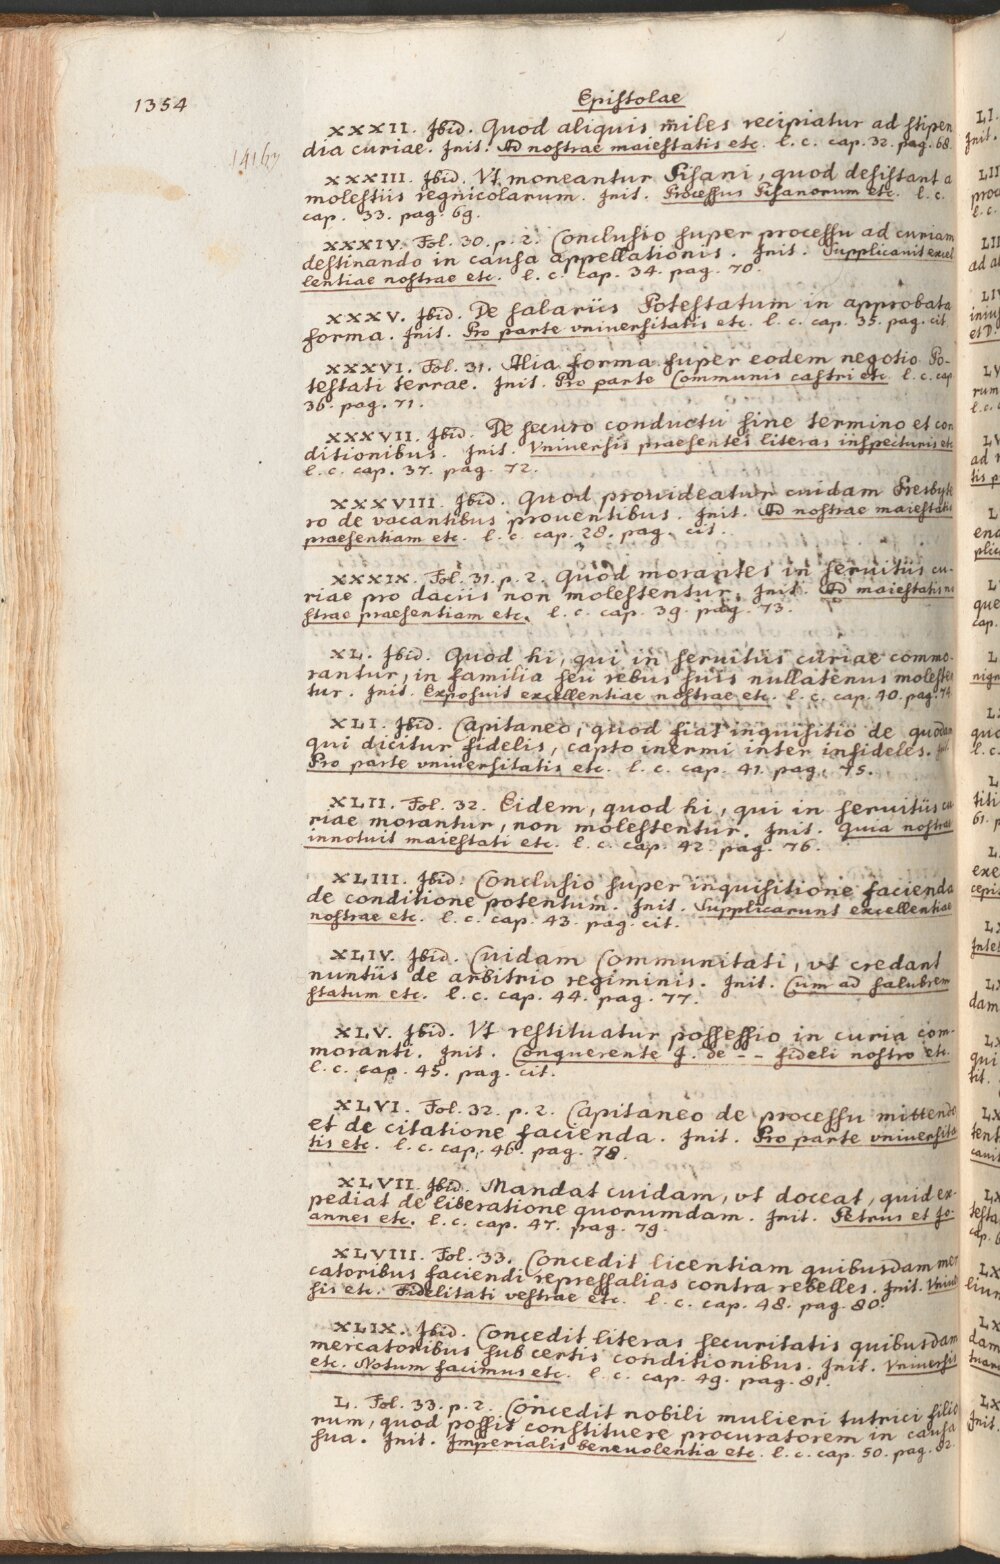 1354
Epistolae
XXXII. Ibid. Quod aliquis miles recipiatur ad stipen
dia curiae. Init. Ad nostrae maiestatis etc. l. c. cap. 32. pag. 68.
XXXIII. Ibid. Vt moneantur Pisani, quod desistant a
molestiis regnicolarum. Init. Processus Pisanorum etc. l. c.
cap. 33. pag. 69.
XXXIV. Fol. 30. p. 2. Conclusio super processu ad curiam
destinando in causa appellationis. Init. Supplicauit excel
lentiae nostrae etc. l. c. cap. 34. pag. 70.
XXXV. Ibid. De salariis Potestatum in approbata
forma. Init. Pro parte vniuersitatis etc. l. c. cap. 35. pag. cit.
XXXVI. Fol. 31. Alia forma super eodem negotio Po-
testati terrae. Init. Pro parte Communis castri etc. l. c. cap
36. pag. 71.
XXXVII. Ibid. De securo conductu sine termino et con
ditionibus. Init. Vniuersis praesentes literas inspecturis etc
l. c. cap. 37. pag. 72.
XXXVIII. Ibid. Quod prouideatur cuidam Presbyte
ro de vacantibus prouentibus. Init. Ad nostrae maiestatis
praesentiam etc. l. c. cap. 28. pag. cit.
XXXIX. Fol. 31. p. 2. Quod morantes in seruitiis cu-
riae pro daciis non molestentur. Init. Ad maiestatis no
strae praesentiam etc. l. c. cap. 39. pag. 73.
XL. Ibid. Quod hi, qui in seruitiis curiae commo-
rantur, in familia seu rebus suis nullatenus molesten
tur. Init. Exposuit excellentiae nostrae etc. l. c. cap. 40. pag. 74
XLI. Ibid. Capitaneo, quod fiat inquisitio de quodam
qui dicitur fidelis, capto inermi inter infideles. Init.
Pro parte vniuersitatis etc. l. c. cap. 41. pag. 75.
XLII. Fol. 32. Eidem, quod hi, qui in seruitiis cu
riae morantur, non molestentur. Init. Quia nostrae
innotuit maiestati etc. l. c. cap. 42. pag. 76.
XLIII. Ibid. Conclusio super inquisitione facienda
de conditione potentum. Init. Supplicarunt excellentiae
nostrae etc. l. c. cap. 43. pag. cit.
XLIV. Ibid. Cuidam Communitati, vt credant
nuntiis de arbitrio regiminis. Init. Cum ad salubrem
statum etc. l. c. cap. 44. pag. 77.
XLV. Ibid. Vt restituatur possessio in curia com-
moranti. Init. Conquerente J. de - - fideli nostro etc.
l. c. cap. 45. pag. cit.
XLVI. Fol. 32. p. 2. Capitaneo de processu mittendo
et de citatione facienda. Init. Pro parte vniuersita
tis etc. l. c. cap. 46. pag. 78.
XLVII. Ibid. Mandat cuidam, vt doceat, quid ex-
pediat de liberatione quorumdam. Init. Petrus et Jo-
annes etc. l. c. cap. 47. pag. 79.
XLVIII. Fol. 33. Concedit licentiam quibusdam mer
catoribus faciendi repressalias contra rebelles. Init. Vniuer
sis etc. Fidelitati vestrae etc. l. c. cap. 48. pag. 80.
XLIX. Ibid. Concedit literas securitatis quibusdam
mercatoribus sub certis conditionibus. Init. Vniuersis
etc. Notum facimus etc. l. c. cap. 49. pag. 81.
L. Fol. 33. p. 2. Concedit nobili mulieri tutrici filio
rum, quod possit constituere procuratorem in causa
sua. Init. Imperialis beneuolentia etc. l. c. cap. 50. pag. 82.